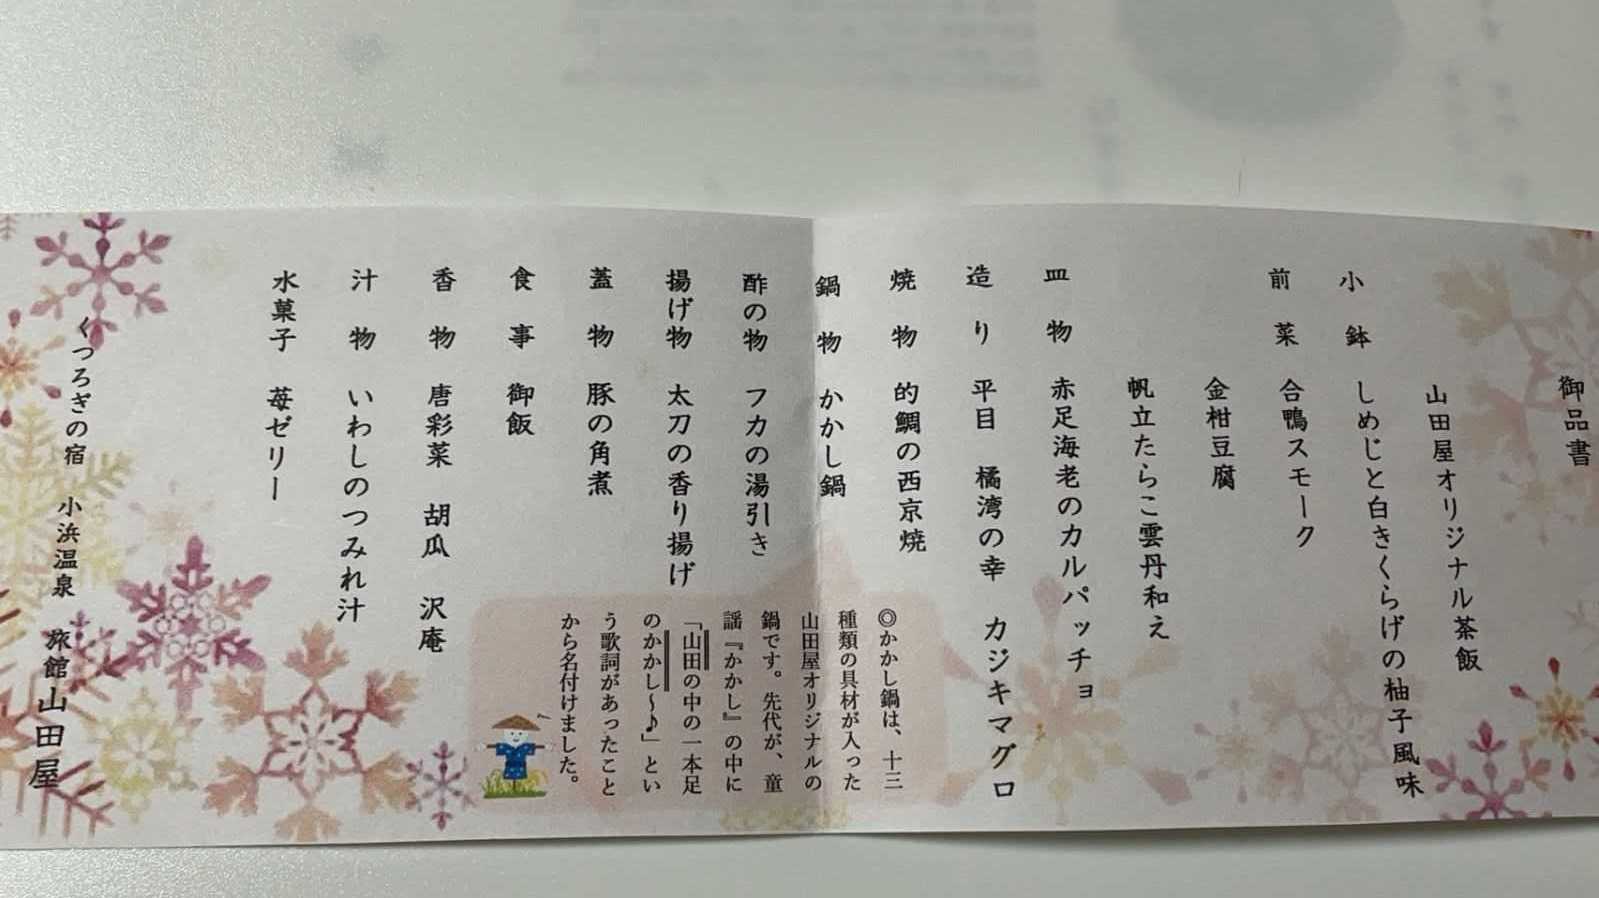 御品書
山田屋オリジナル茶飯
小鉢 しめじと白きくらげの柚子風味
前菜 合鴨スモーク
金柑豆腐
帆立たらこ雲丹和え
皿物 赤足海老のカルパッチョ
造り 平目 橘湾の幸 カジキマグロ
焼物 的鯛の西京焼
鍋物 かかし鍋
酢の物 フカの湯引き
揚げ物 太刀の香り揚げ
蓋物 豚の角煮
食事 御飯
香物 唐彩菜 胡瓜 沢庵
汁物 いわしのつみれ汁
水菓子 苺ゼリー
◎かかし鍋は、十三
種類の具材が入った
山田屋オリジナルの
鍋です。先代が、童
謡『かかし』の中に
「山田の中の一本足
のかかし～♪」とい
う歌詞があったこと
から名付けました。
くつろぎの宿 小浜温泉 旅館山田屋